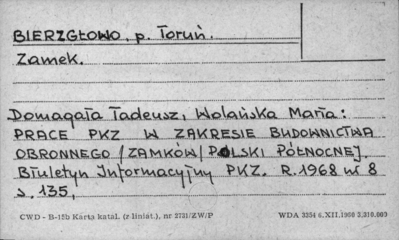 BIERZGŁOWO, p. Toruń.
Zamek.
Domagała Tadeusz, Wolańska Maria:
PRACE PKZ W ZAKRESIE BUDOWNICTWA
OBRONNEGO /ZAMKÓW/ POLSKI PÓŁNOCNEJ
Biuletyn Informacyjny PKZ. R.1968 nr 8
s. 135,
CWD - B-15b Karta katal. (z liniat.), nr 2731/ZW/P WDA 3354 6.XII.1966 5.310.003